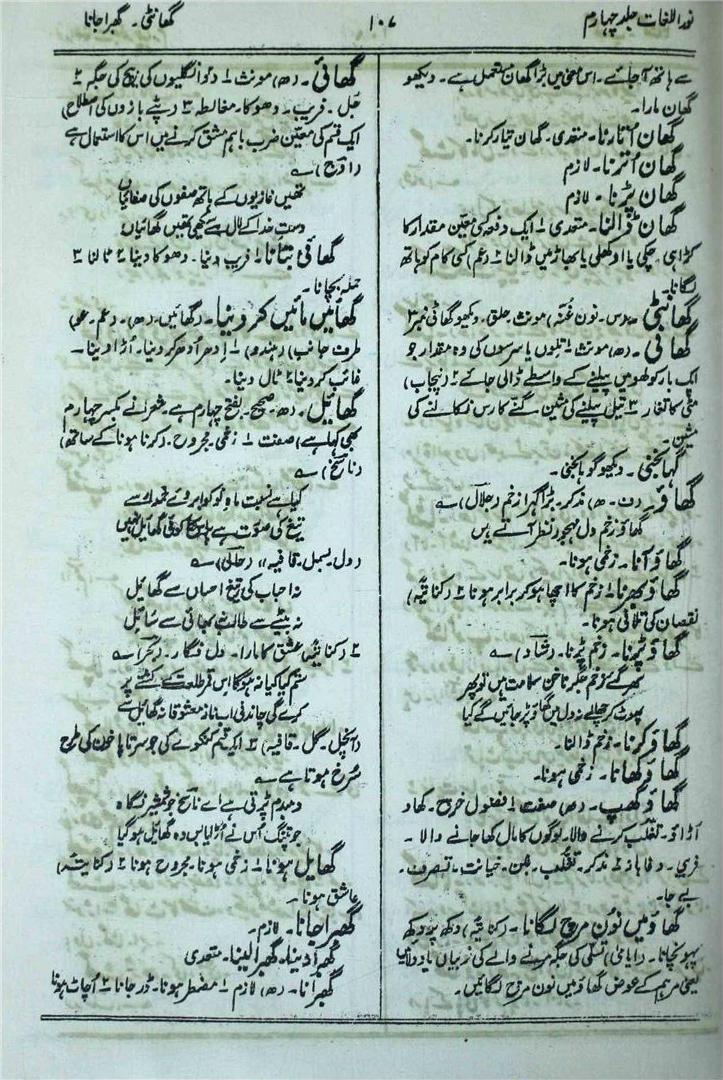 نور اللغات جلد چہارم
۱۰۷
گھانٹی۔ گھبرا جانا
سے ہاتھ آجائے۔ اس معنی میں بڑا گھان مستعمل ہے۔ دیکھو
گھان مارا۔
گھان اُتارنا۔ متعدی۔ گھان تیار کرنا۔
گھان اُترنا۔ لازم
گھان پڑنا۔ لازم
گھان ڈالنا۔ متعدی ۱۔ ایک دفعہ کی معین مقدار کا
کڑاہی چکی یا اوکھلی یا بھاڑ میں ڈالنا ۲۔ (عم) کسی کام کو ہاتھ
لگانا۔
گھانٹی۔ نون غنہ) مونث۔ حلق۔ دیکھو گھاٹی نمبر ۳
گھانی۔ (ھ) مونث ۱۔ تلوں یا سرسوں کی وہ مقدار جو
ایک بار کولھو میں پیلنے کے واسطے ڈالی جائے ۲۔ (پنجاب)
مٹی کا تغار ۳۔ تیل پیلنے کی مشین گنے کا رس نکالنے کی
مشین۔
گہانجنی۔ دیکھو گوہانجنی۔
گھاؤ۔ (ھ) مذکر۔ بڑا گہرا زخم (جلال) ؎
گھاؤ زخم دل مہجور نظر آتے ہیں
گھاؤ آنا۔ زخمی ہونا۔
گھاؤ بھرنا ۱۔ زخم کا اچھا ہوکر برابر ہونا ۲۔ (کنایۃً)
نقصان کی تلافی ہونا۔
گھاؤ پڑنا۔ زخم پڑنا۔ (شاد) ؎
بھر گئے زخم جگر ناخن سلامت ہیں تو پھر
پھوٹ کر چھالے نہ دل میں گھاؤ پڑ جائیں گے کیا
گھاؤ کرنا۔ زخم ڈالنا۔
گھاؤ کھانا۔ زخمی ہونا۔
گھاؤ گھپ۔ (ھ) صفت ۱۔ فضول خرچ۔ کھاو
اُڑاؤ۔ تغلب کرنے والا۔ لوگوں کا مال کھا جانے والا۔
فریبی۔ دغاباز ۲۔ مذکر۔ تغلب۔ غبن۔ خیانت۔ تصرف۔
بے جا۔
گھاؤ میں نون مرچ لگانا۔ (کنایۃً) دکھ پر دکھ
پہونچانا۔ تسلی کی جگہ
یعنی مرہم کے عوض گھاؤ میں نون مرچ لگائیں۔
گھائی۔ (ھ) مونث ۱۔ دو انگلیوں کی بیچ کی جگہ ۲
جُل۔ فریب۔ دھوکا۔ مغالطہ ۳۔ (پٹے بازوں کی اصطلاح)
ایک قسم کی معین ضرب باہم مشق کرنے میں اس کا استعمال ہے
(اوج) ؎
تھیں غازیوں کے ہاتھ صفوں کی صفائیاں
دستِ خدا کے لال سے سیکھی تھیں گھائیاں
گھائی بتانا ۱۔ فریب دینا۔ دھوکا دینا ۲۔ ٹالنا ۳
حملہ بچانا۔
گھائیں مائیں کر دینا۔ (گھائیں۔ (ھ)۔ (عم۔ عو)
طرف جانب) (ہندو) ۱۔ اِدھر اُدھر کردینا۔ اُڑا دینا۔
غائب کر دینا ۲۔ ٹال دینا۔
گھایل۔ (ھ۔ صحیح۔ بفتح چہارم ہے شعرا نے بکسر چہارم
بھی کہا ہے) صفت ۱۔ زخمی۔ مجروح۔ (کرنا ہونا کے ساتھ)
(ناسخ) ؎
کیا ہے نسبت ماہ نو کو ابروے خمدار سے
تیغ کی صورت ہے پر کوئی گھایل نہیں
(دل۔ بسمل۔ قافیہ) (حالی) ؎
نہ احباب کی تیغ احساں سے گھایل
نہ بیٹے سے طالب نہ بھائی سے سائل
۲۔ (کنایۃً) عشق کا مارا۔ دل فگار۔ (بحر) ؎
ستم کیا کیا نہ ہوگا اس قمر طلعت کے کشتے پر
کرے گی چاندنی اب ناز معشوقانہ گھایل سے
(آنچل۔ گل۔ قافیہ) ۳۔ ایک قسم کنکوے کی جو سرتاپا خون کی طرح
سُرخ ہوتا ہے ؎
دمبدم پڑتی ہے اے ناسخ جو شمشیر نگاہ
جو پتنگ اُس نے اُڑایا بس وہ گھایل ہوگیا
گھایل ہونا ۱۔ زخمی ہونا۔ مجروح ہونا ۲۔ (کنایۃً)
عاشق ہونا۔
گھبرا جانا۔ لازم۔
گھبرا دینا۔ گھبرا لینا۔ متعدی
گھبرانا۔ (ھ) لازم ۱۔ مضطر ہونا۔ ڈر جانا ۲۔ اُچاٹ ہونا